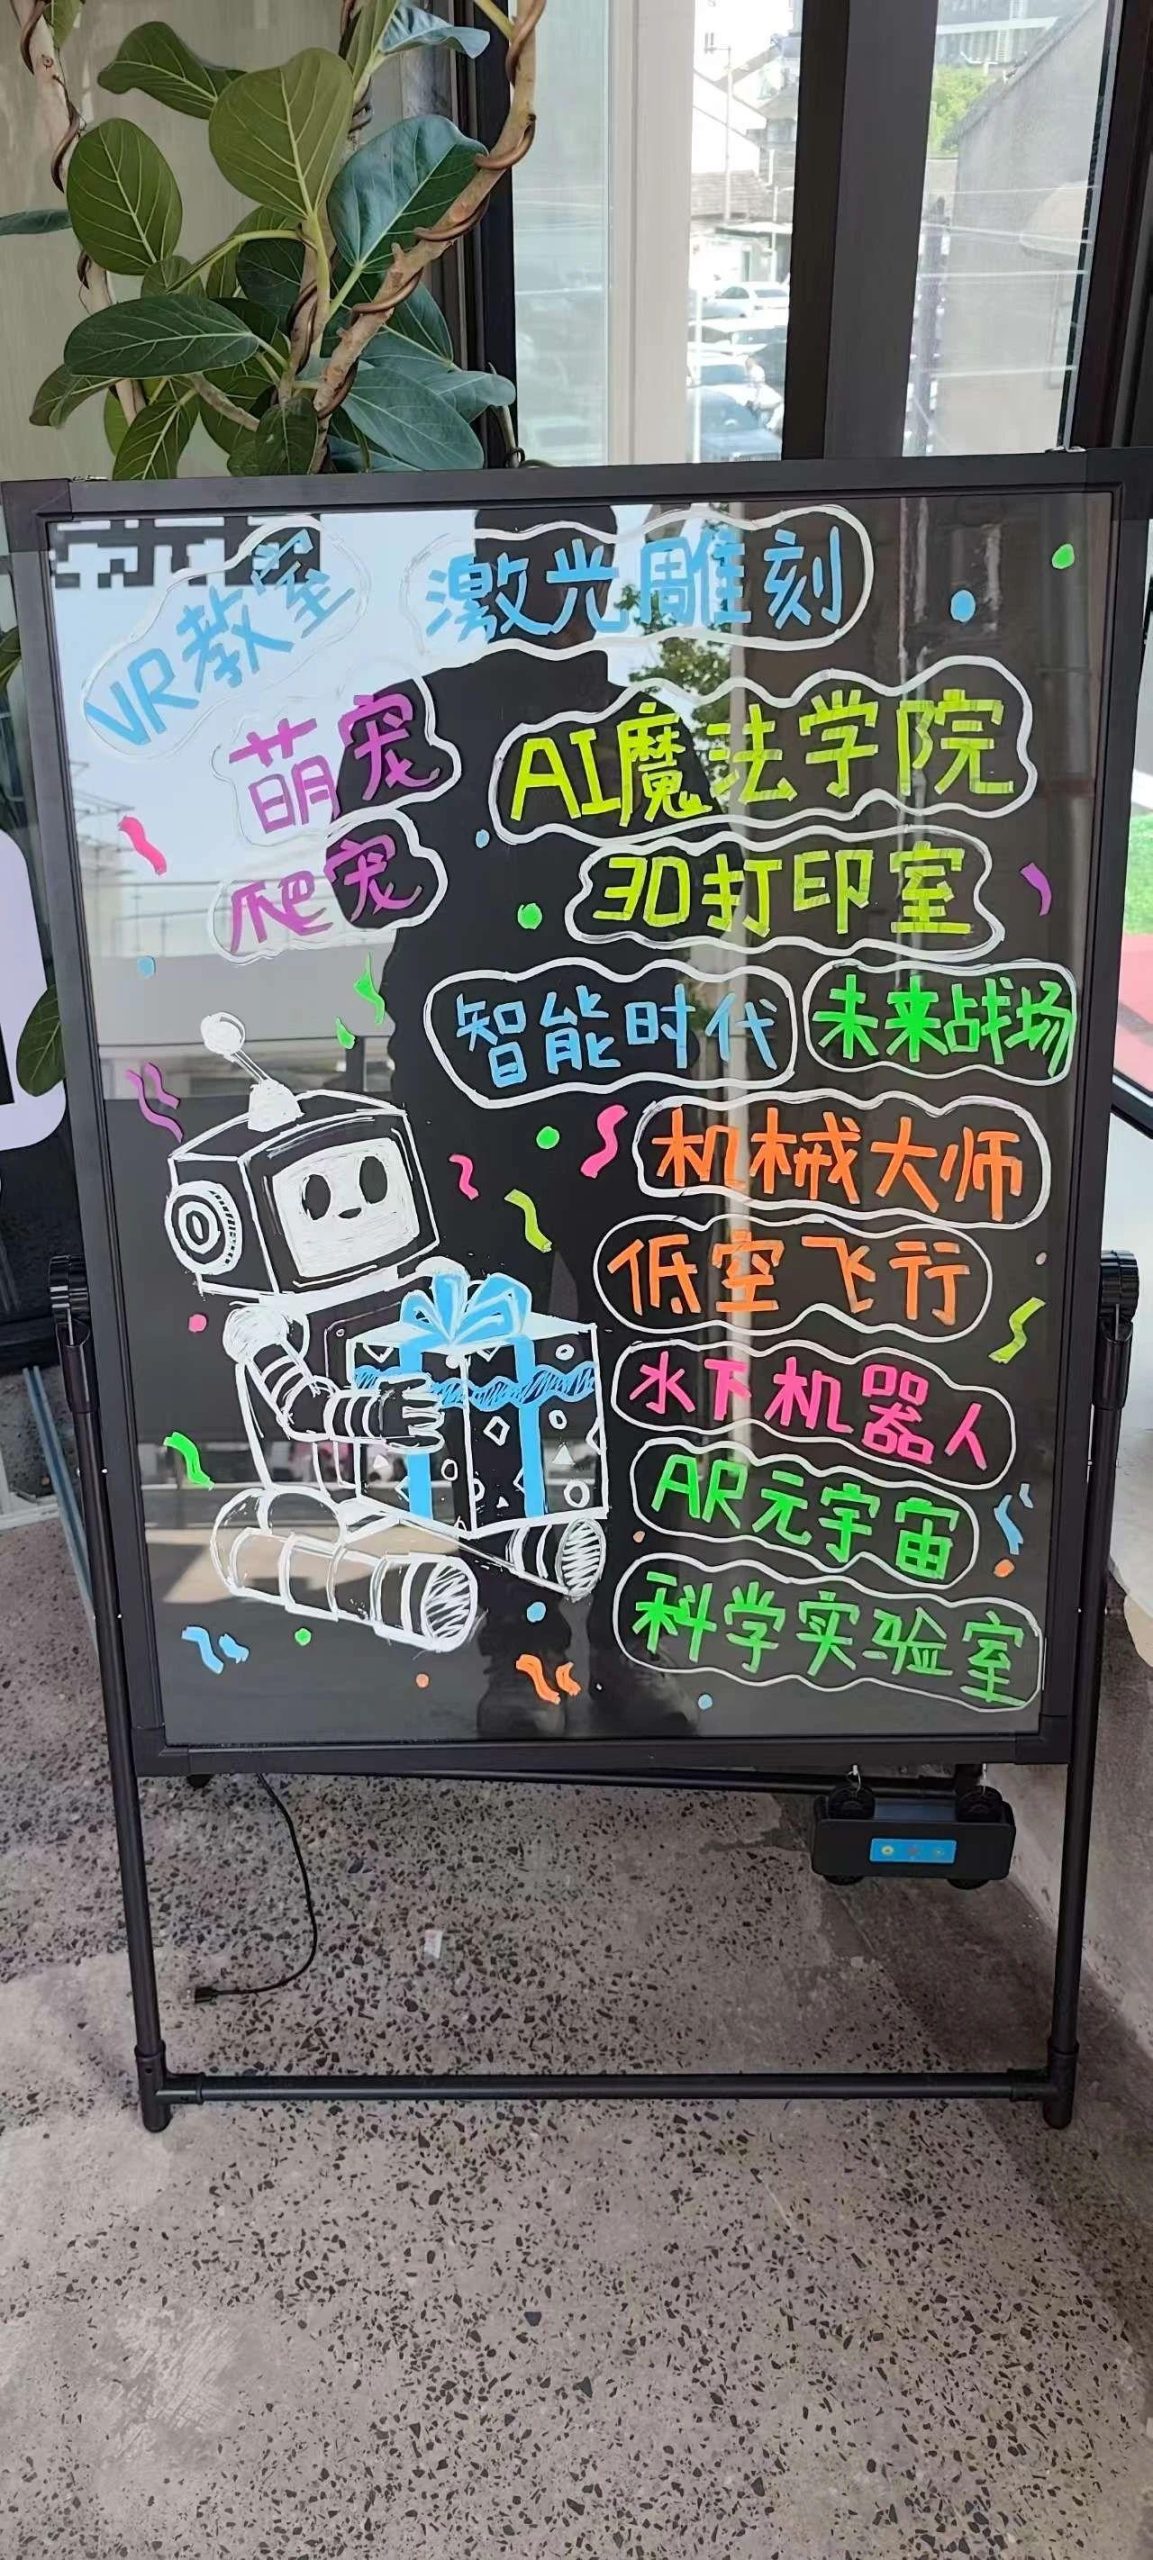 VR教室
激光雕刻
萌宠
AI魔法学院
爬宠
3D打印室
智能时代
未来战场
机械大师
低空飞行
水下机器人
AR元宇宙
科学实验室